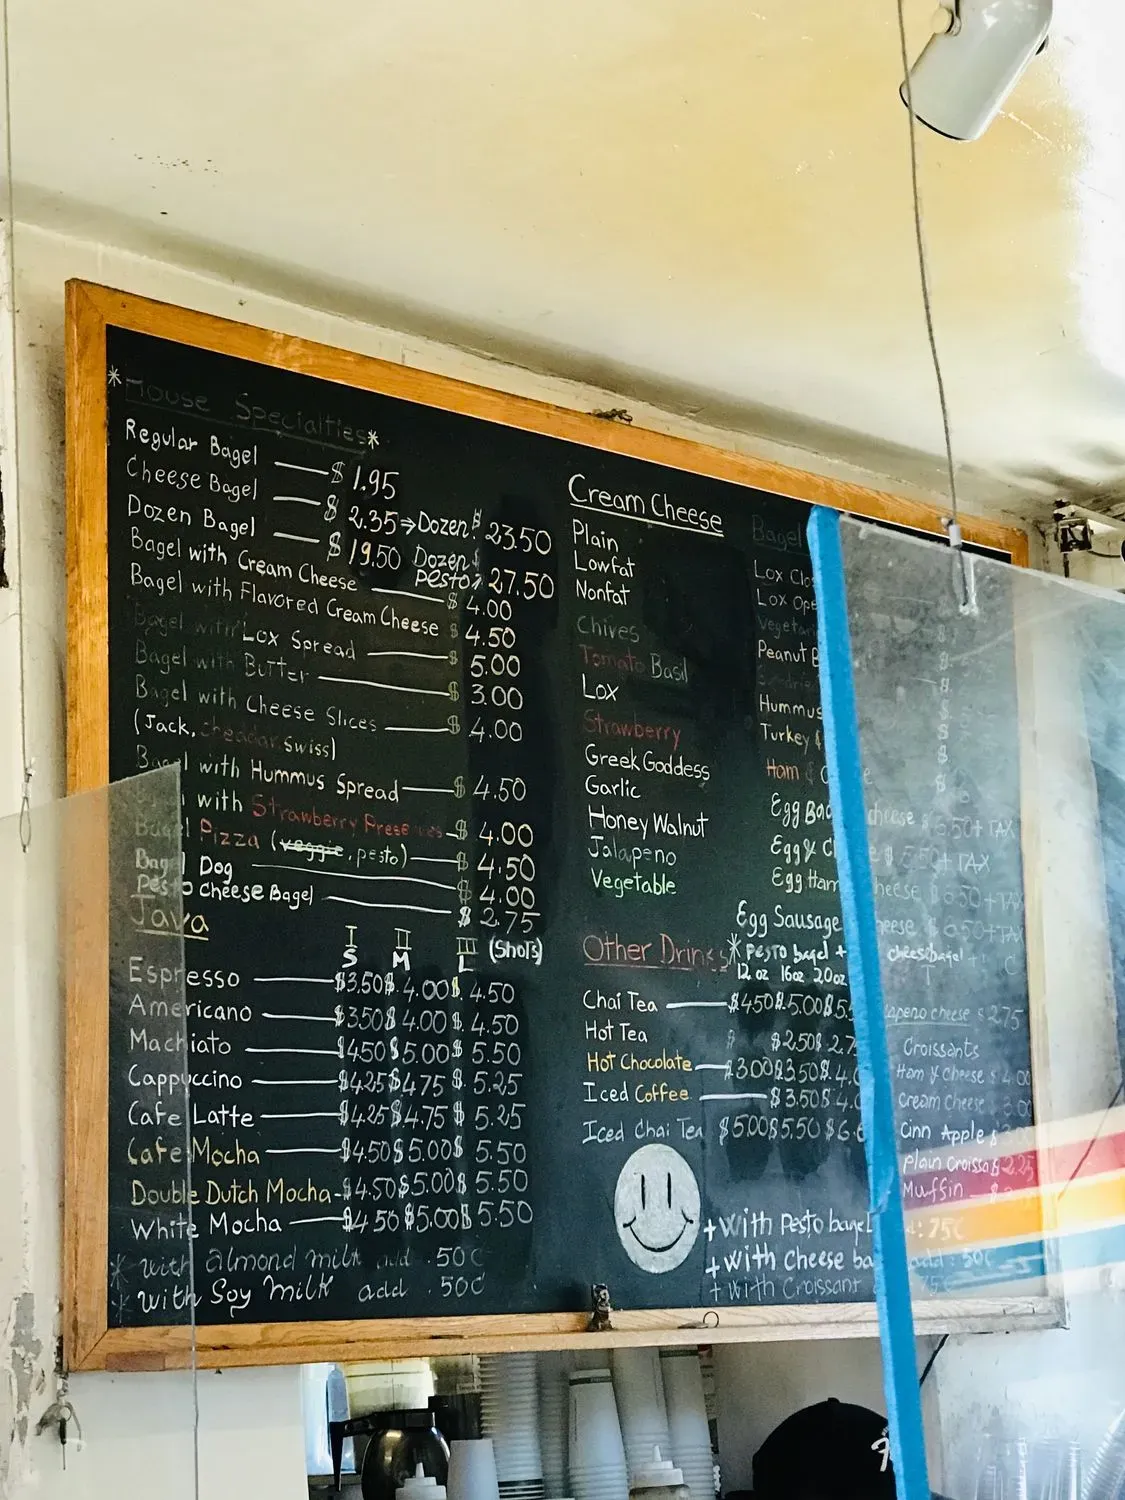 *House Specialties*
Regular Bagel — $ 1.95
Cheese Bagel — $ 2.35 ⇒ Dozen: $ 23.50
Dozen Bagel — $ 19.50 Dozen pesto: $ 27.50
Bagel with Cream Cheese — $ 4.00
Bagel with Flavored Cream Cheese $ 4.50
Bagel with Lox Spread — $ 5.00
Bagel with Butter — $ 3.00
Bagel with Cheese Slices — $ 4.00
(Jack, cheadar, swiss)
Bagel with Hummus Spread — $ 4.50
with Strawberry Preserves — $ 4.00
Bagel Pizza (veggie, pesto) — $ 4.50
Bagel Dog — $ 4.00
Pesto cheese Bagel — $ 2.75
Java
I II III (Shots)
S M L
Espresso — $3.50 $ 4.00 $ 4.50
Americano — $3.50 $ 4.00 $ 4.50
Machiato — $4.50 $ 5.00 $ 5.50
Cappuccino — $4.25 $4.75 $ 5.25
Cafe Latte — $4.25 $4.75 $ 5.25
Cafe Mocha — $4.50 $5.00 $ 5.50
Double Dutch Mocha - $4.50 $5.00 $ 5.50
White Mocha — $4.50 $5.00 $ 5.50
* with almond milk add .50¢
* with Soy Milk add .50¢
Cream Cheese
Plain
Lowfat
Nonfat
Chives
Tomato Basil
Lox
Strawberry
Greek Goddess
Garlic
Honey Walnut
Jalapeno
Vegetable
Other Drinks
12 oz 16oz 20oz
Chai Tea — $4.50 $5.00 $5.5
Hot Tea $ $2.50 $ 2.7
Hot Chocolate — $3.00 $3.50 $4.0
Iced Coffee — $3.50 $ 4.0
Iced Chai Tea $5.00 $5.50 $6.
Bagel
Lox Clo
Lox Ope
Vegetar
Peanut B
Hummus
Turkey &
Ham & C e
Egg Bac cheese $ 6.50+TAX
Egg & C e $ 5.50+TAX
Egg Ham cheese $ 6.50+TAX
Egg Sausage cheese $ 6.50+TAX
* pesto bagel + cheesebagel +
apeno cheese $ 2.75
Croissants
Ham & cheese $ 4.00
cream cheese $ 3.00
Cinn Apple $ 3.00
Plain Croissa $ 2.25
Muffin — $
+ with Pesto bagel d: 75¢
+ with cheese ba add: 50¢
+ with Croissant 75¢